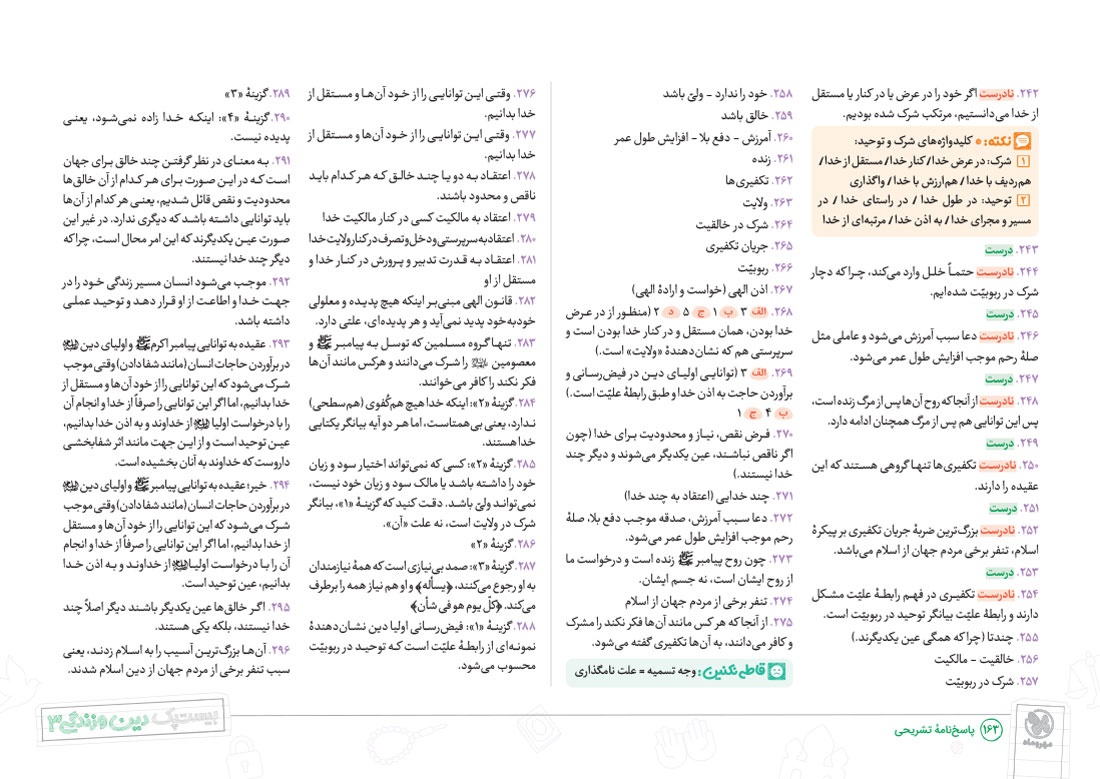 ۲۴۲. نادرست اگر خود را در عرض یا در کنار یا مستقل
از خدا می‌دانستیم، مرتکب شرک شده بودیم.
نکته: کلیدواژه‌های شرک و توحید:
۱ شرک: در عرض خدا/ کنار خدا/ مستقل از خدا/
هم‌ردیف با خدا/ هم‌ارزش با خدا/ واگذاری
۲ توحید: در طول خدا / در راستای خدا / در
مسیر و مجرای خدا/ به اذن خدا/ مرتبه‌ای از خدا
۲۴۳. درست
۲۴۴. نادرست حتماً خلل وارد می‌کند، چرا که دچار
شرک در ربوبیّت شده‌ایم.
۲۴۵. درست
۲۴۶. نادرست دعا سبب آمرزش می‌شود و عاملی مثل
صلهٔ رحم موجب افزایش طول عمر می‌شود.
۲۴۷. درست
۲۴۸. نادرست از آنجا که روح آن‌ها پس از مرگ زنده است،
پس این توانایی هم پس از مرگ همچنان ادامه دارد.
۲۴۹. درست
۲۵۰. نادرست تکفیری‌ها تنها گروهی هستند که این
عقیده را دارند.
۲۵۱. درست
۲۵۲. نادرست بزرگ‌ترین ضربهٔ جریان تکفیری بر پیکرهٔ
اسلام، تنفر برخی مردم جهان از اسلام می‌باشد.
۲۵۳. درست
۲۵۴. نادرست تکفیری در فهم رابطهٔ علیّت مشکل
دارند و رابطهٔ علیّت بیانگر توحید در ربوبیّت است.
۲۵۵. چندتا (چرا که همگی عین یکدیگرند.)
۲۵۶. خالقیت - مالکیت
۲۵۷. شرک در ربوبیّت
۲۵۸. خود را ندارد - ولیّ باشد
۲۵۹. خالق باشد
۲۶۰. آمرزش - دفع بلا - افزایش طول عمر
۲۶۱. زنده
۲۶۲. تکفیری‌ها
۲۶۳. ولایت
۲۶۴. شرک در خالقیت
۲۶۵. جریان تکفیری
۲۶۶. ربوبیّت
۲۶۷. اذن الهی (خواست و ارادهٔ الهی)
۲۶۸. الف ۳ ب ۱ ج ۵ د ۲ (منظور از در عرض
خدا بودن، همان مستقل و در کنار خدا بودن است و
سرپرستی هم که نشان‌دهندهٔ «ولایت» است.)
۲۶۹. الف ۳ (توانایی اولیای دین در فیض‌رسانی و
برآوردن حاجت به اذن خدا و طبق رابطهٔ علیّت است.)
ب ۴ ج ۱
۲۷۰. فرض نقص، نیاز و محدودیت برای خدا (چون
اگر ناقص نباشند، عین یکدیگر می‌شوند و دیگر چند
خدا نیستند.)
۲۷۱. چند خدایی (اعتقاد به چند خدا)
۲۷۲. دعا سبب آمرزش، صدقه موجب دفع بلا، صلهٔ
رحم موجب افزایش طول عمر می‌شود.
۲۷۳. چون روح پیامبر ﷺ زنده است و درخواست ما
از روح ایشان است، نه جسم ایشان.
۲۷۴. تنفر برخی از مردم جهان از اسلام
۲۷۵. از آنجا که هر کس مانند آن‌ها فکر نکند را مشرک
و کافر می‌دانند، به آن‌ها تکفیری گفته می‌شود.
قاطی نکنین: وجه تسمیه = علت نامگذاری
۲۷۶. وقتی این توانایی را از خود آن‌ها و مستقل از
خدا بدانیم.
۲۷۷. وقتی این توانایی را از خود آن‌ها و مستقل از
خدا بدانیم.
۲۷۸. اعتقاد به دو یا چند خالق که هر کدام باید
ناقص و محدود باشند.
۲۷۹. اعتقاد به مالکیت کسی در کنار مالکیت خدا
۲۸۰. اعتقاد به سرپرستی و دخل و تصرف در کنار ولایت خدا
۲۸۱. اعتقاد به قدرت تدبیر و پرورش در کنار خدا و
مستقل از او
۲۸۲. قانون الهی مبنی‌بر اینکه هیچ پدیده و معلولی
خودبه‌خود پدید نمی‌آید و هر پدیده‌ای، علتی دارد.
۲۸۳. تنها گروه مسلمین که توسل به پیامبر ﷺ و
معصومین را شرک می‌دانند و هرکس مانند آن‌ها
فکر نکند را کافر می‌خوانند.
۲۸۴. گزینهٔ «۲»: اینکه خدا هیچ هم‌کُفوی (هم‌سطحی)
ندارد، یعنی بی‌همتاست، اما هر دو آیه بیانگر یکتایی
خدا هستند.
۲۸۵. گزینهٔ «۲»: کسی که نمی‌تواند اختیار سود و زیان
خود را داشته باشد یا مالک سود و زیان خود نیست،
نمی‌تواند ولیّ باشد. دقت کنید که گزینهٔ «۱»، بیانگر
شرک در ولایت است، نه علت «آن».
۲۸۶. گزینهٔ «۲»
۲۸۷. گزینهٔ «۳»: صمد بی‌نیازی است که همهٔ نیازمندان
به او رجوع می‌کنند، ﴿یسأله﴾ و او هم نیاز همه را برطرف
می‌کند. ﴿کلّ یوم هو فی شأن﴾
۲۸۸. گزینهٔ «۱»: فیض‌رسانی اولیا دین نشان‌دهندهٔ
نمونه‌ای از رابطهٔ علیّت است که توحید در ربوبیّت
محسوب می‌شود.
۲۸۹. گزینهٔ «۳»
۲۹۰. گزینهٔ «۴»: اینکه خدا زاده نمی‌شود، یعنی
پدیده نیست.
۲۹۱. به معنای در نظر گرفتن چند خالق برای جهان
است که در این صورت برای هر کدام از آن خالق‌ها
محدودیت و نقص قائل شدیم، یعنی هر کدام از آن‌ها
باید توانایی داشته باشد که دیگری ندارد. در غیر این
صورت عین یکدیگرند که این امر محال است، چرا که
دیگر چند خدا نیستند.
۲۹۲. موجب می‌شود انسان مسیر زندگی خود را در
جهت خدا و اطاعت از او قرار دهد و توحید عملی
داشته باشد.
۲۹۳. عقیده به توانایی پیامبر اکرم ﷺ و اولیای دین
در برآوردن حاجات انسان (مانند شفا دادن) وقتی موجب
شرک می‌شود که این توانایی را از خود آن‌ها و مستقل از
خدا بدانیم، اما اگر این توانایی را صرفاً از خدا و انجام آن
را با درخواست اولیا از خداوند و به اذن خدا بدانیم،
عین توحید است و از این جهت مانند اثر شفابخشی
داروست که خداوند به آنان بخشیده است.
۲۹۴. خیر؛ عقیده به توانایی پیامبر ﷺ و اولیای دین
در برآوردن حاجات انسان (مانند شفا دادن) وقتی موجب
شرک می‌شود که این توانایی را از خود آن‌ها و مستقل
از خدا بدانیم، اما اگر این توانایی را صرفاً از خدا و انجام
آن را با درخواست اولیا از خداوند و به اذن خدا
بدانیم، عین توحید است.
۲۹۵. اگر خالق‌ها عین یکدیگر باشند دیگر اصلاً چند
خدا نیستند، بلکه یکی هستند.
۲۹۶. آن‌ها بزرگ‌ترین آسیب را به اسلام زدند، یعنی
سبب تنفر برخی از مردم جهان از دین اسلام شدند.
مهروماه
۱۶۳ پاسخ‌نامهٔ تشریحی
بیست‌پک دین و زندگی ۳